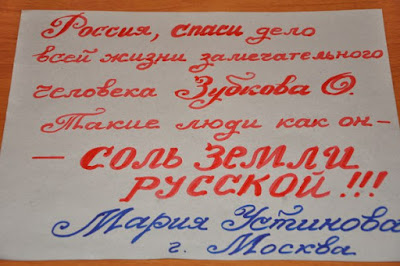 Россия, спаси дело
всей жизни замечательного
человека Зубкова О.
Такие люди как он –
– СОЛЬ ЗЕМЛИ
РУССКОЙ!!!
Мария Устинова
г. Москва